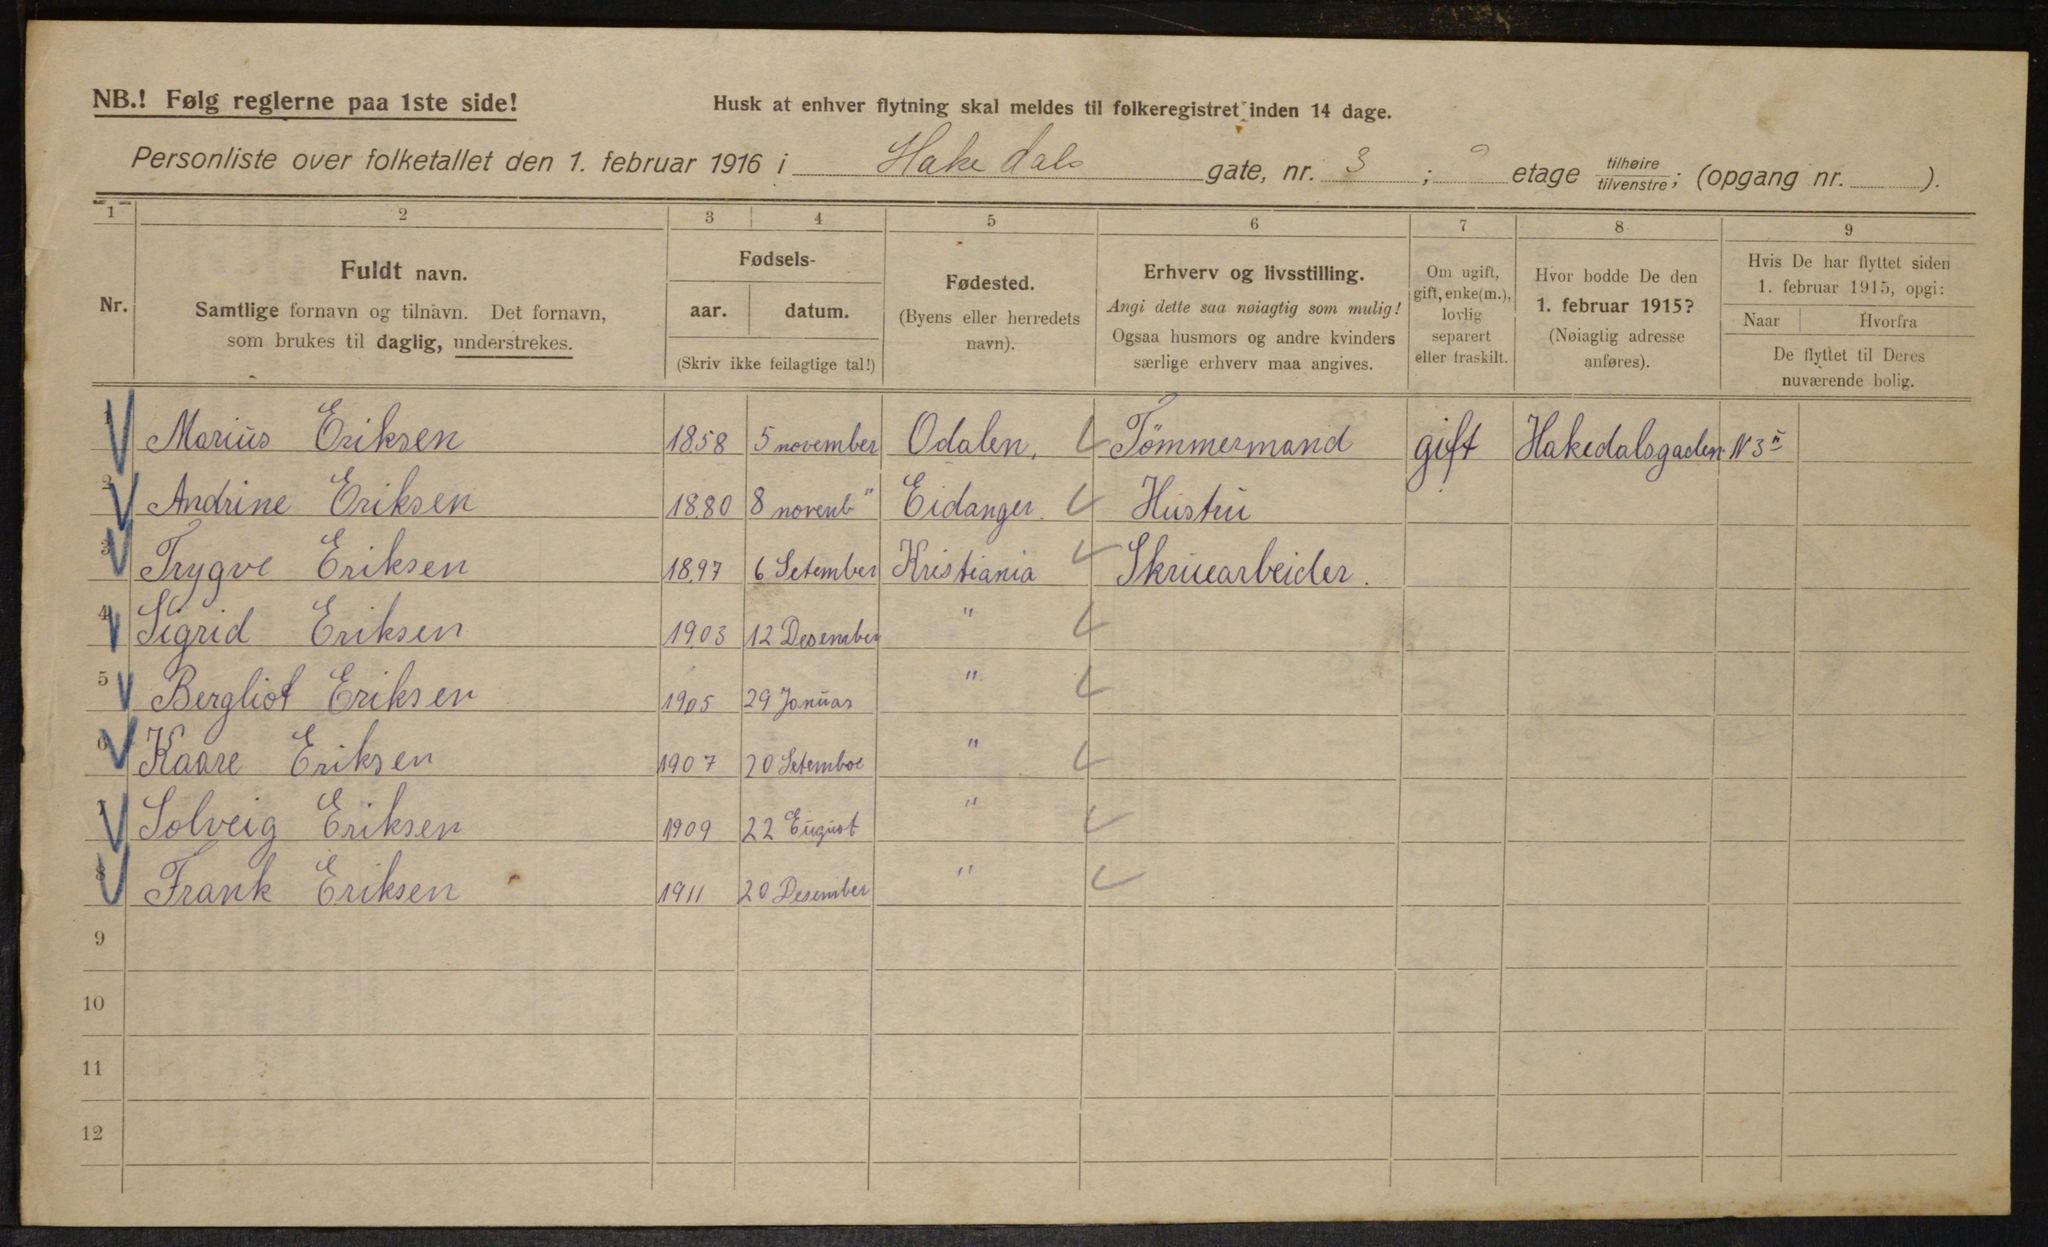 NB.! Følg reglerne paa 1ste side!
Husk at enhver flytning skal meldes til folkeregistret inden 14 dage.
Personliste over folketallet den 1. februar 1916 i Hakedals gate, nr. 3 ; etage tilhøire tilvenstre; (opgang nr. ).
1 2 3 4 5 6 7 8 9
Nr.
Fuldt navn.
Samtlige fornavn og tilnavn. Det fornavn,
som brukes til daglig, understrekes.
Fødsels-
aar. datum.
(Skriv ikke feilagtige tal!)
Fødested.
(Byens eller herredets
navn).
Erhverv og livsstilling.
Angi dette saa nøiagtig som mulig!
Ogsaa husmors og andre kvinders
særlige erhverv maa angives.
Om ugift,
gift, enke(m.),
lovlig
separert
eller fraskilt.
Hvor bodde De den
1. februar 1915?
(Nøiagtig adresse
anføres).
Hvis De har flyttet siden
1. februar 1915, opgi:
Naar Hvorfra
De flyttet til Deres
nuværende bolig.
1 Marius Eriksen 1858 5 november Odalen. Tømmermand gift Hakedalsgaden N 3 II
2 Andrine Eriksen 1880 8 novenb " Eidanger. Hustru
3 Trygve Eriksen 1897 6 Setember Kristiania Skruearbeider.
4 Sigrid Eriksen 1903 12 Desember "
5 Bergliot Eriksen 1905 29 Januar "
6 Kaare Eriksen 1907 20 Setemboe "
7 Solveig Eriksen 1909 22 Eugust "
8 Frank Eriksen 1911 20 Desember "
9
10
11
12